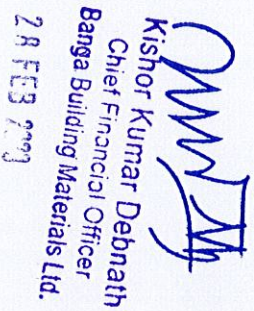 Kishor Kumar Debnath
Chief Financial Officer
Banga Building Materials Ltd.
28 FEB